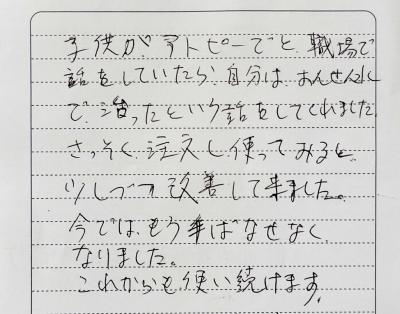 子供がアトピーでと、職場で
話をしていたら、自分は、おんせん水
で、治ったという話をしてくれました。
さっそく、注文し、使ってみると、
少しづつ改善して来ました。
今では、もう手ばなせなく、
なりました。
これからも使い続けます。